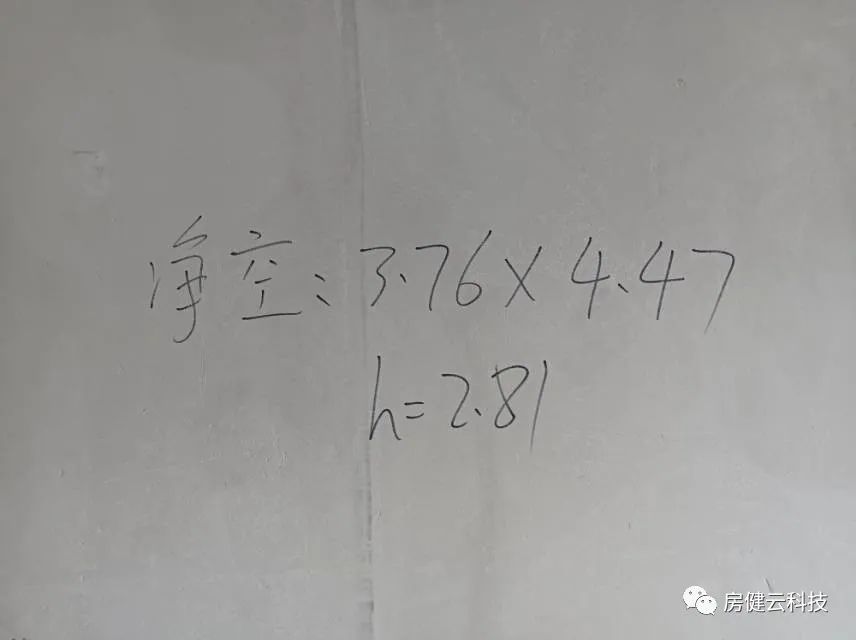 净空：3.76×4.47
h=2.81
房健云科技